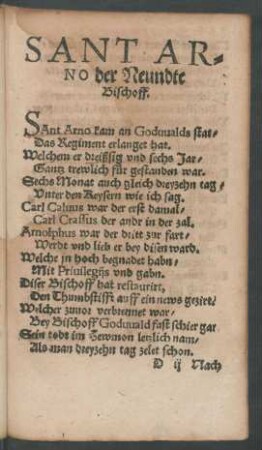 SANT AR-
NO der Neundte
Bischoff.
SAnt Arno kam an Godwalds stat/
Das Regiment erlanget hat.
Welchem er dreissig vnd sechs Jar/
Gantz trewlich für gestanden war.
Sechs Monat auch gleich dreyzehn tag/
Vnter den Keysern wie ich sag.
Carl Caluus war der erst damal/
Carl Crassus der ander in der zal.
Arnolphus war der dritt zur fart/
Werdt vnd lieb er bey disen ward.
Welche jn hoch begnadet habn/
Mit Priuilegijs vnd gabn.
Diser Bischoff hat restaurirt,
Den Thumbstifft auff ein news gezirt/
Welcher zuuor verbrennet war/
Bey Bischoff Goduuald fast schier gar
Sein todt im Hewmon leylich nam/
Als man dreyzehn tag zelet schon.
D ij Nach